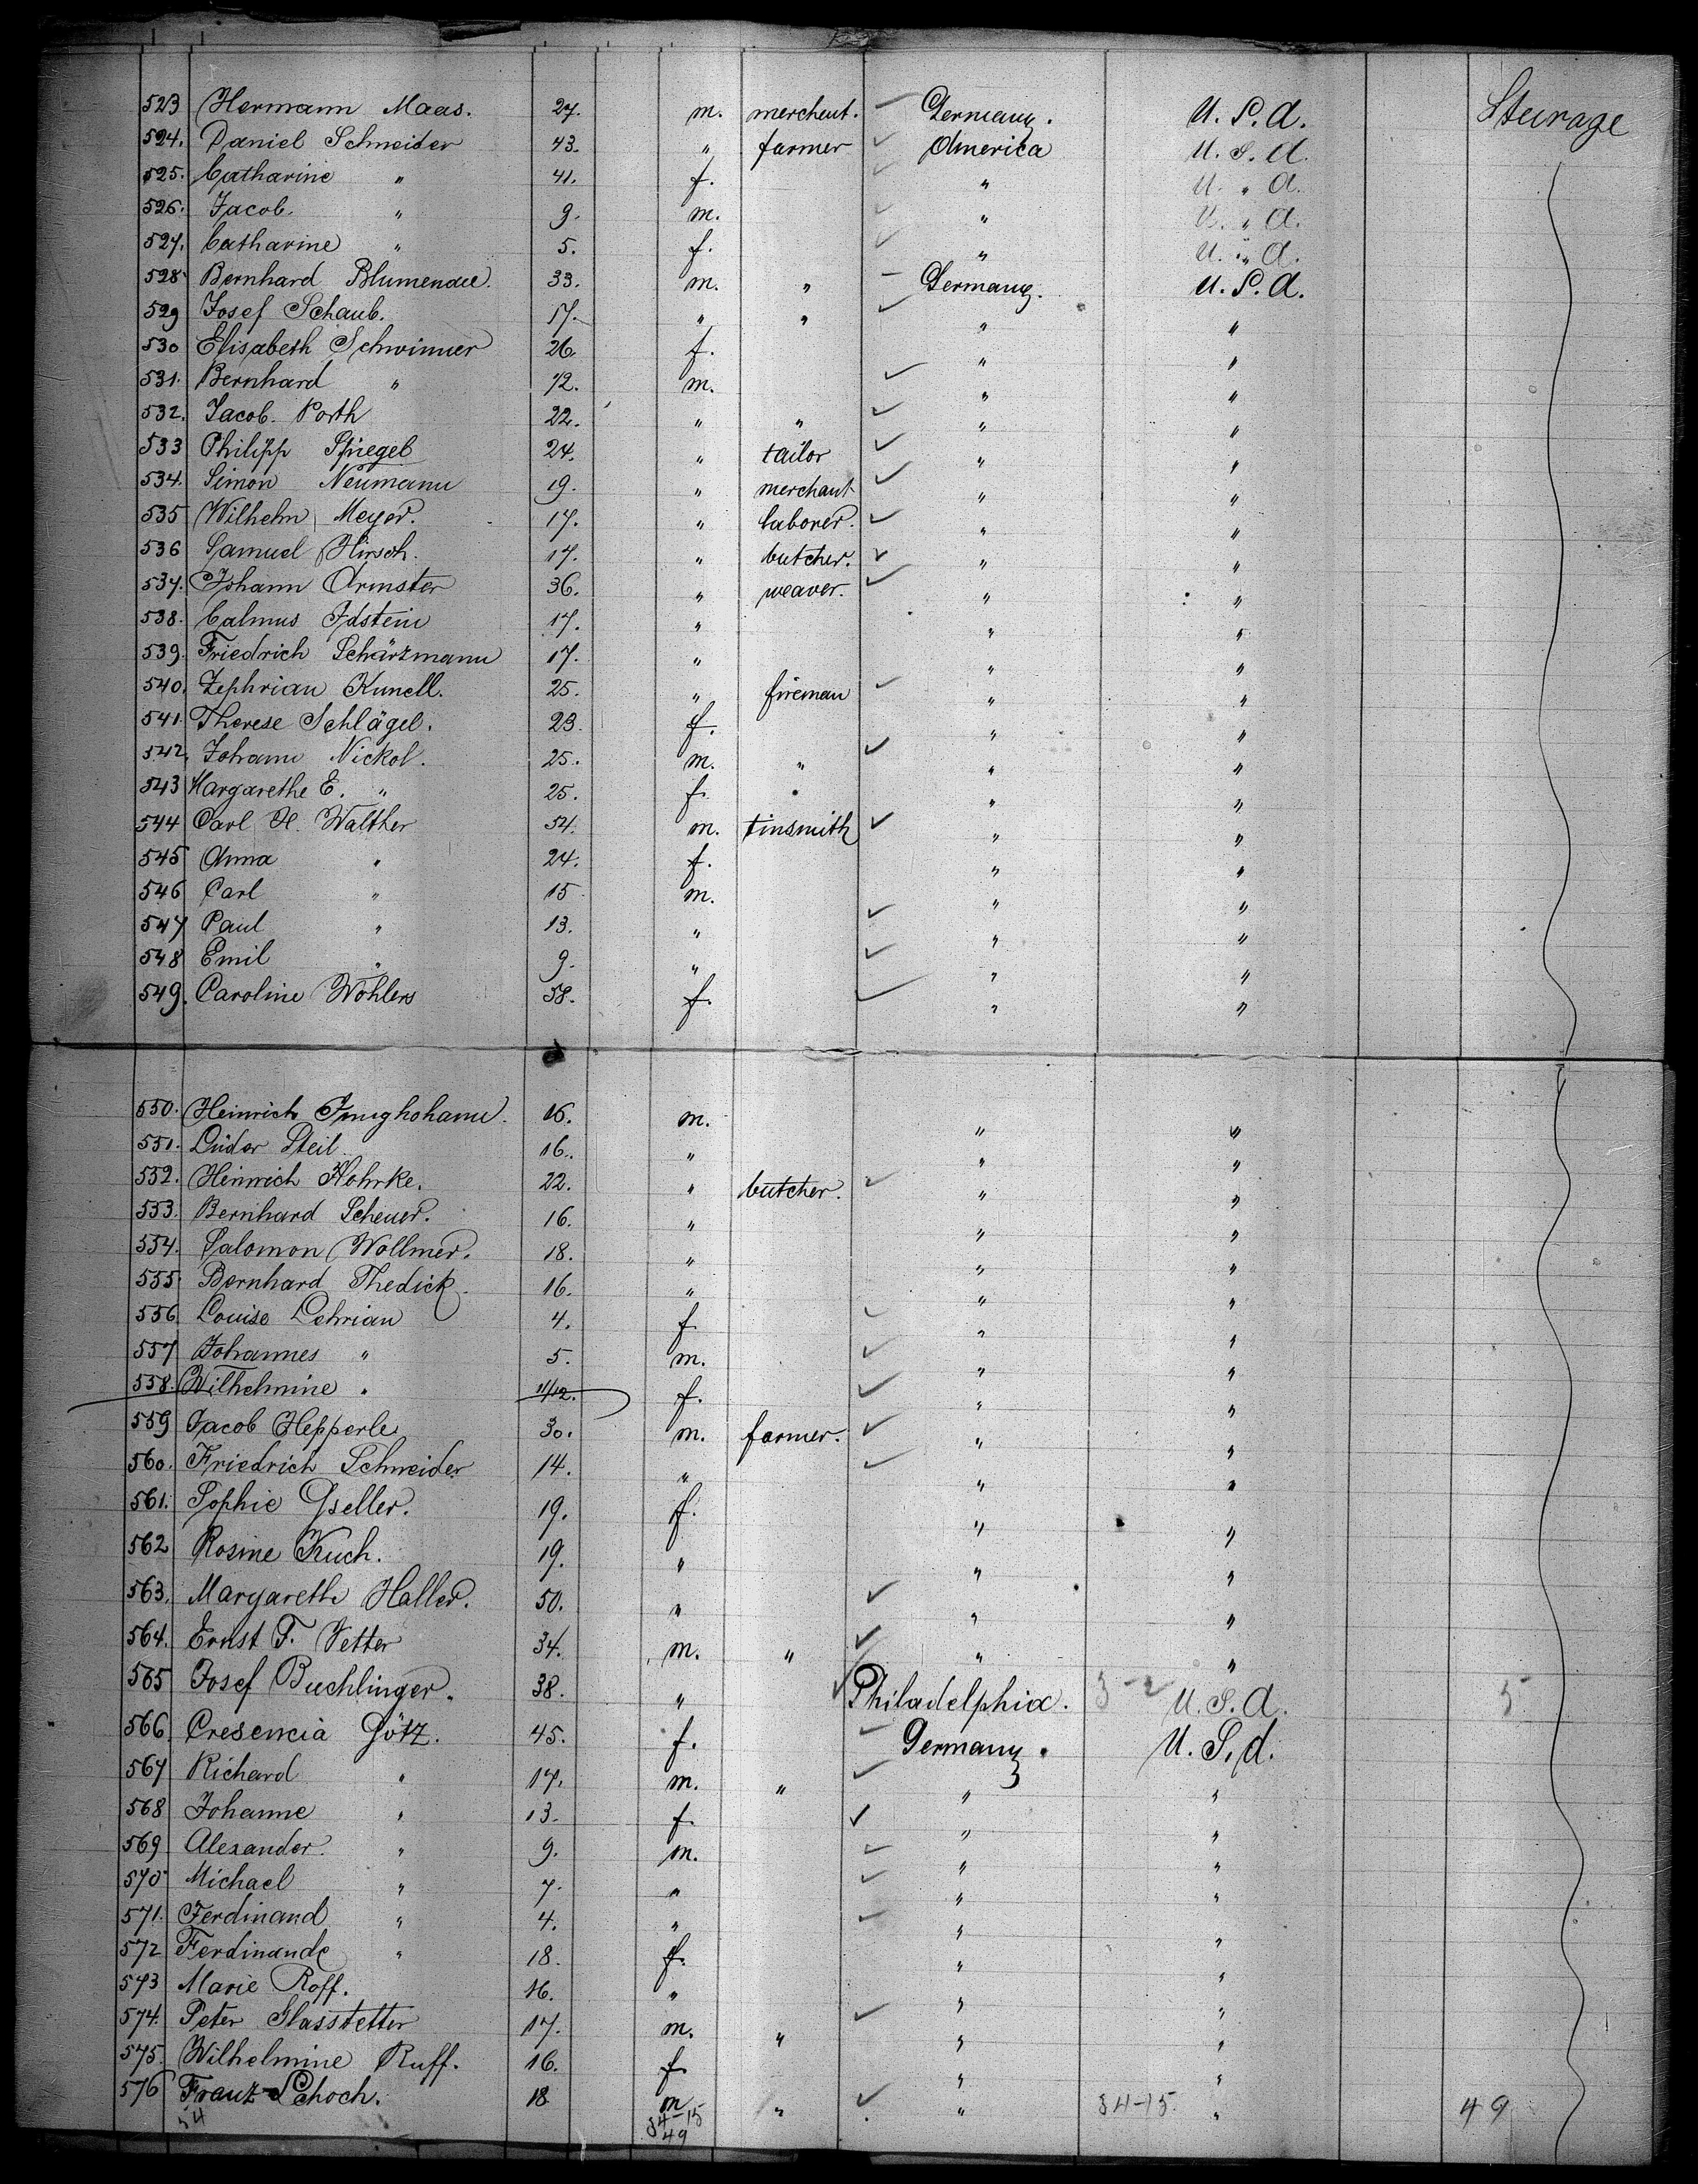 523 Hermann Maas. 27. m. merchant. Germany. U. S. A. Steurage
524. Daniel Schneider 43. " farmer America U. S. A.
525. Catharine " 41. f. " U. " A.
526. Jacob. " 9. m. " U. " A.
527. Catharine " 5. f. " U. " A.
528 Bernhard 33. m. " Germany. U. S. A.
529 Josef Schaub. 17. " " " "
530 Elisabeth Schwimmer 26. f. " "
531. Bernhard " m. " "
532. Jacob. Porth 22. " " " "
533 Philipp Spiegel 24. " tailor " "
534. Simon Neumann 19. " merchant " "
535 Wilhelm Meyer. 17. " laborer. " "
536 Samuel Hirsch. 17. " butcher. " "
537. Johann Armster 36. " weaver. " "
538. Calmus Idstein 17. " " "
539. Friedrich Schärzmann 17. " " "
540. Zephrian Kunell. 25. " fireman " "
541. Therese Schlägel. 23. f. " "
542. Johann Nickol. 25. m. " " "
543 Margarethe E. " 25. f. " "
544 Carl H. Walther 54. m. tinsmith " "
545 Anna " 24. f. " "
546 Carl " 15 m. " "
547 Paul " 13. " " "
548 Emil " 9. " " "
549. Caroline Wohlers 58. f. " "
550. Heinrich Junghohann. 16. m. " "
551. Lüder Steil 16. " " "
552. Heinrich Kohrke. 22. " butcher. " "
553. Bernhard Scheuer. 16. " " "
554. Salomon Wollmer. 18. " " "
555. Bernhard Thedick. 16. " " "
556. Louise Lehrian 4. f. " "
557 Johannes " 5. m. " "
558. Wilhelmine " 11/12. f. " "
559 Jacob Hepperle 30. m. farmer. " "
560. Friedrich Schneider 14. " " "
561. Sophie Gseller. 19. f. " "
562 Rosine Kuch. 19. " " "
563. Margarethe Haller. 50. " " "
564. Ernst F. Vetter 34. m. " " "
565 Josef Buchlinger. 38. " Philadelphia. 3-2 U. S. A. 5
566. Cresencia Götz. 45. f. Germany. U. S. A.
567 Richard " 17. m. " " "
568 Johanne " 13. f. " "
569 Alexander. " 9. m. " "
570 Michael " 7. " " "
571. Ferdinand " 4. " " "
572 Ferdinande " 18. f. " "
573 Marie Roff. 16. " " "
574. Peter Glasstetter 17. m. " " "
575. Wilhelmine Ruff. 16. f. " "
576 Franz Schoch. 18 m " " 34-15. " 49
54 34-15
49